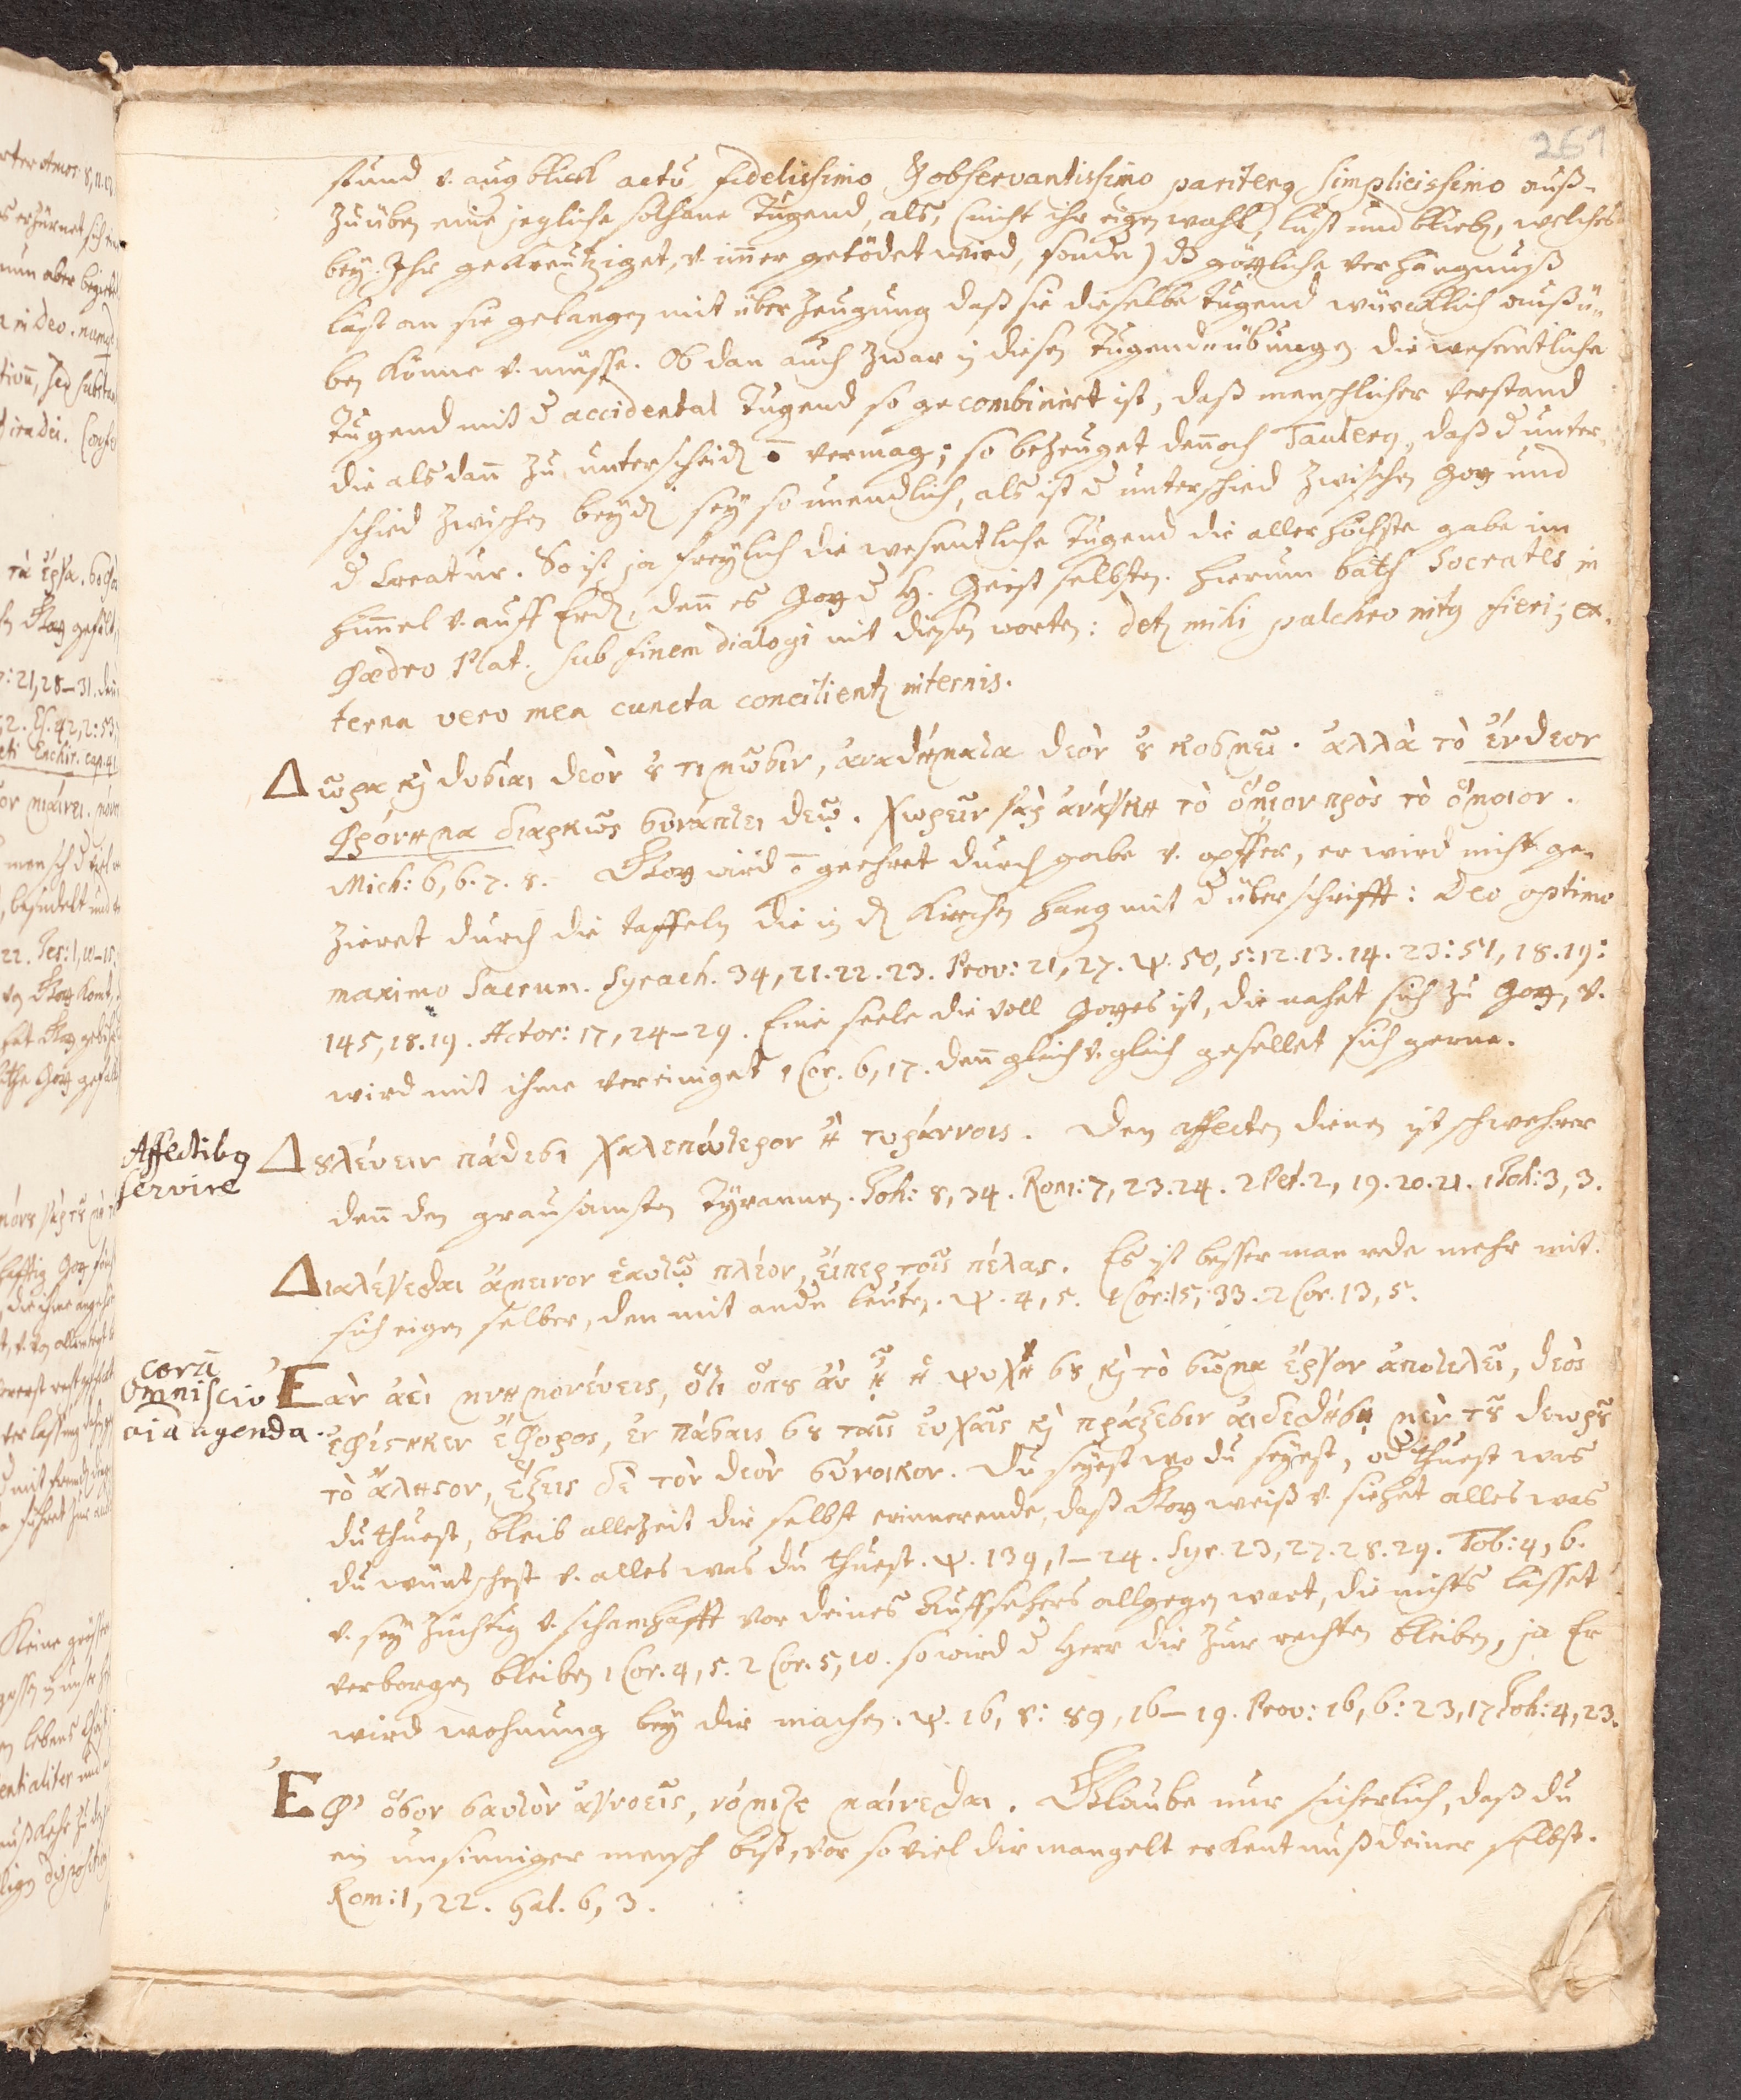 261
stund v. augblick actu fidelissimo & observantissimo pariterq simplicissimo auß-
zuüben eine jegliche solhane Tugend, als, (nicht ihr eigen wahl, lust und belieb, welches
bey Ihr gekreutziget, v. im̄er getödet wird, sonder) dz götzliche verhängnuß
läst an sie gelangen mit überzeugung daß sie dieselbe tugend würcklich außü-
ben könne v. müsse. Ob dan auch zwar in diesen Tugendübungen die wesentliche
Tugend mit d accidental Tugend so gecombinirt ist, daß menschlicher verstand
die alsdan̄ zu unterscheid vermag; so bezeuget den̄och Taulerq, daß d unter-
schied zwischen beyd sey so unendlich, als ist d unterschied zwischen Gott und
d Creatur. So ist ja freylich die wesentliche Tugend die allerhöchste gabe im
him̄el v. auff Erd, den̄ es Gott d H. Geist selbsten. Hierum bath Socrates in
Phædro Plat. sub finem dialogi mit diesen worten: detz mihi pulchro intq fieri; ex-
terna vero mea cuncta concilientz internis.
Δῶρα κὶ θυσίαι θεὸν ȣ τιμῶσιν, ἀναθήματα θεὸν ȣ κοσμεῖ. ἀλλὰ τὸ ἔνθεον
φρόνημα διαρκῶς συνάπτει θεῷ. χωρεῖν γὰρ ἀνάγκη τὸ ὅμοιον πρὸς τὸ ὅμοιον.
Mich: 6, 6. 7. 8. Gott wird geehret durch gabe v. opffer, er wird nicht ge-
zieret durch die taffeln die in d Kirchen hang mit d überschrifft: Deo optimo
maximo Sacrum. Syrach. 34, 21. 22. 23. Prov: 21, 27. ψ. 50, 5: 12. 13. 14. 23: 51, 18. 19:
145, 18. 19. Actor: 17, 24-29. Eine seele die voll Gottes ist, die nahet sich zu Gott, v.
wird mit ihme vereiniget 1 Cor. 6, 17. den̄ gleich v. gleich gesellet sich gerne.
Affectibq
servire
Δȣλέυειν πάθεσι χαλεπώτερον ἢ τυράννοις. Den affecten dienen ist schwehrer
den̄ den grausamsten Tÿrannen. Joh: 8, 34. Rom: 7, 23. 24. 2 Pet. 2, 19. 20. 21. 1 Joh: 3, 3.
Διαλέγεσθαι ἄμεινον ἑαυτῷ πλέον, ἔιπερ τοῖς πέλας. Es ist besser man rede mehr mit
sich eigen selber, den mit andn leuten. ψ. 4, 5. 1 Cor: 15, 33. 2 Cor. 13, 5.
corā
omniscio
oīa agenda.
Ἐὰν ἀεὶ μνημονέυεις, ὅτι ὅπȣ ἂν ᾖ ἡ ψυχή σȣ κὶ τὸ σῶμα ἔργον ἀποτελεῖ, θεὸς
ἐφέστηκεν ἔφορος, ἐν πάσαις σȣ ταῖς ἐυχαῖς κὶ πράξεσιν αἰδεσθήσῃ μὲν τȣ θεωρȣ
τὸ ἄληστον, ἕξεις δὲ τὸν θεὸν σύνοικον. Du seyest wo du seyest, od thuest was
du thuest, bleib allezeit dir selbst erinnerende, daß Gott weiß v. siehet alles was
du wüntschest v. alles was du thuest. ψ. 139, 1-24. Syr. 23, 27. 28. 29. Tob: 4, 6.
v. sey züchtig v. schamhafft vor deines Auffsehers allgegenwart, die nichts lässet
verborgen bleiben 1 Cor. 4, 5. 2 Cor. 5, 10. so wird d Herr dir zur rechten bleiben, ja Er
wird wohnung bey dir machen. ψ. 16, 8: 89, 16-19. Prov: 16, 6: 23, 17 Joh: 4, 23.
Ἐφ' ὅσον σαυτὸν ἀγνοεῖς, νόμιζε μαίνεσθαι. Glaube nur sicherlich, daß du
ein unsinniger mensch bist, vor so viel dir mangelt erkentnuß deiner selbst.
Rom: 1, 22. Gal. 6, 3.